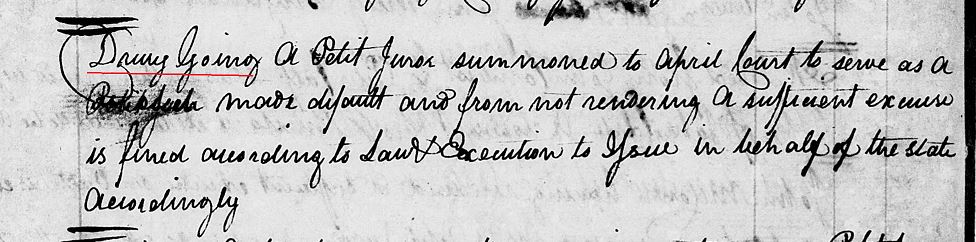 Drury Going A Petit Juror summoned to April Court to serve as A
made default and from not rendering A sufficient excuse
is fined according to Law & Execution to Issue in behalf of the state
Accordingly